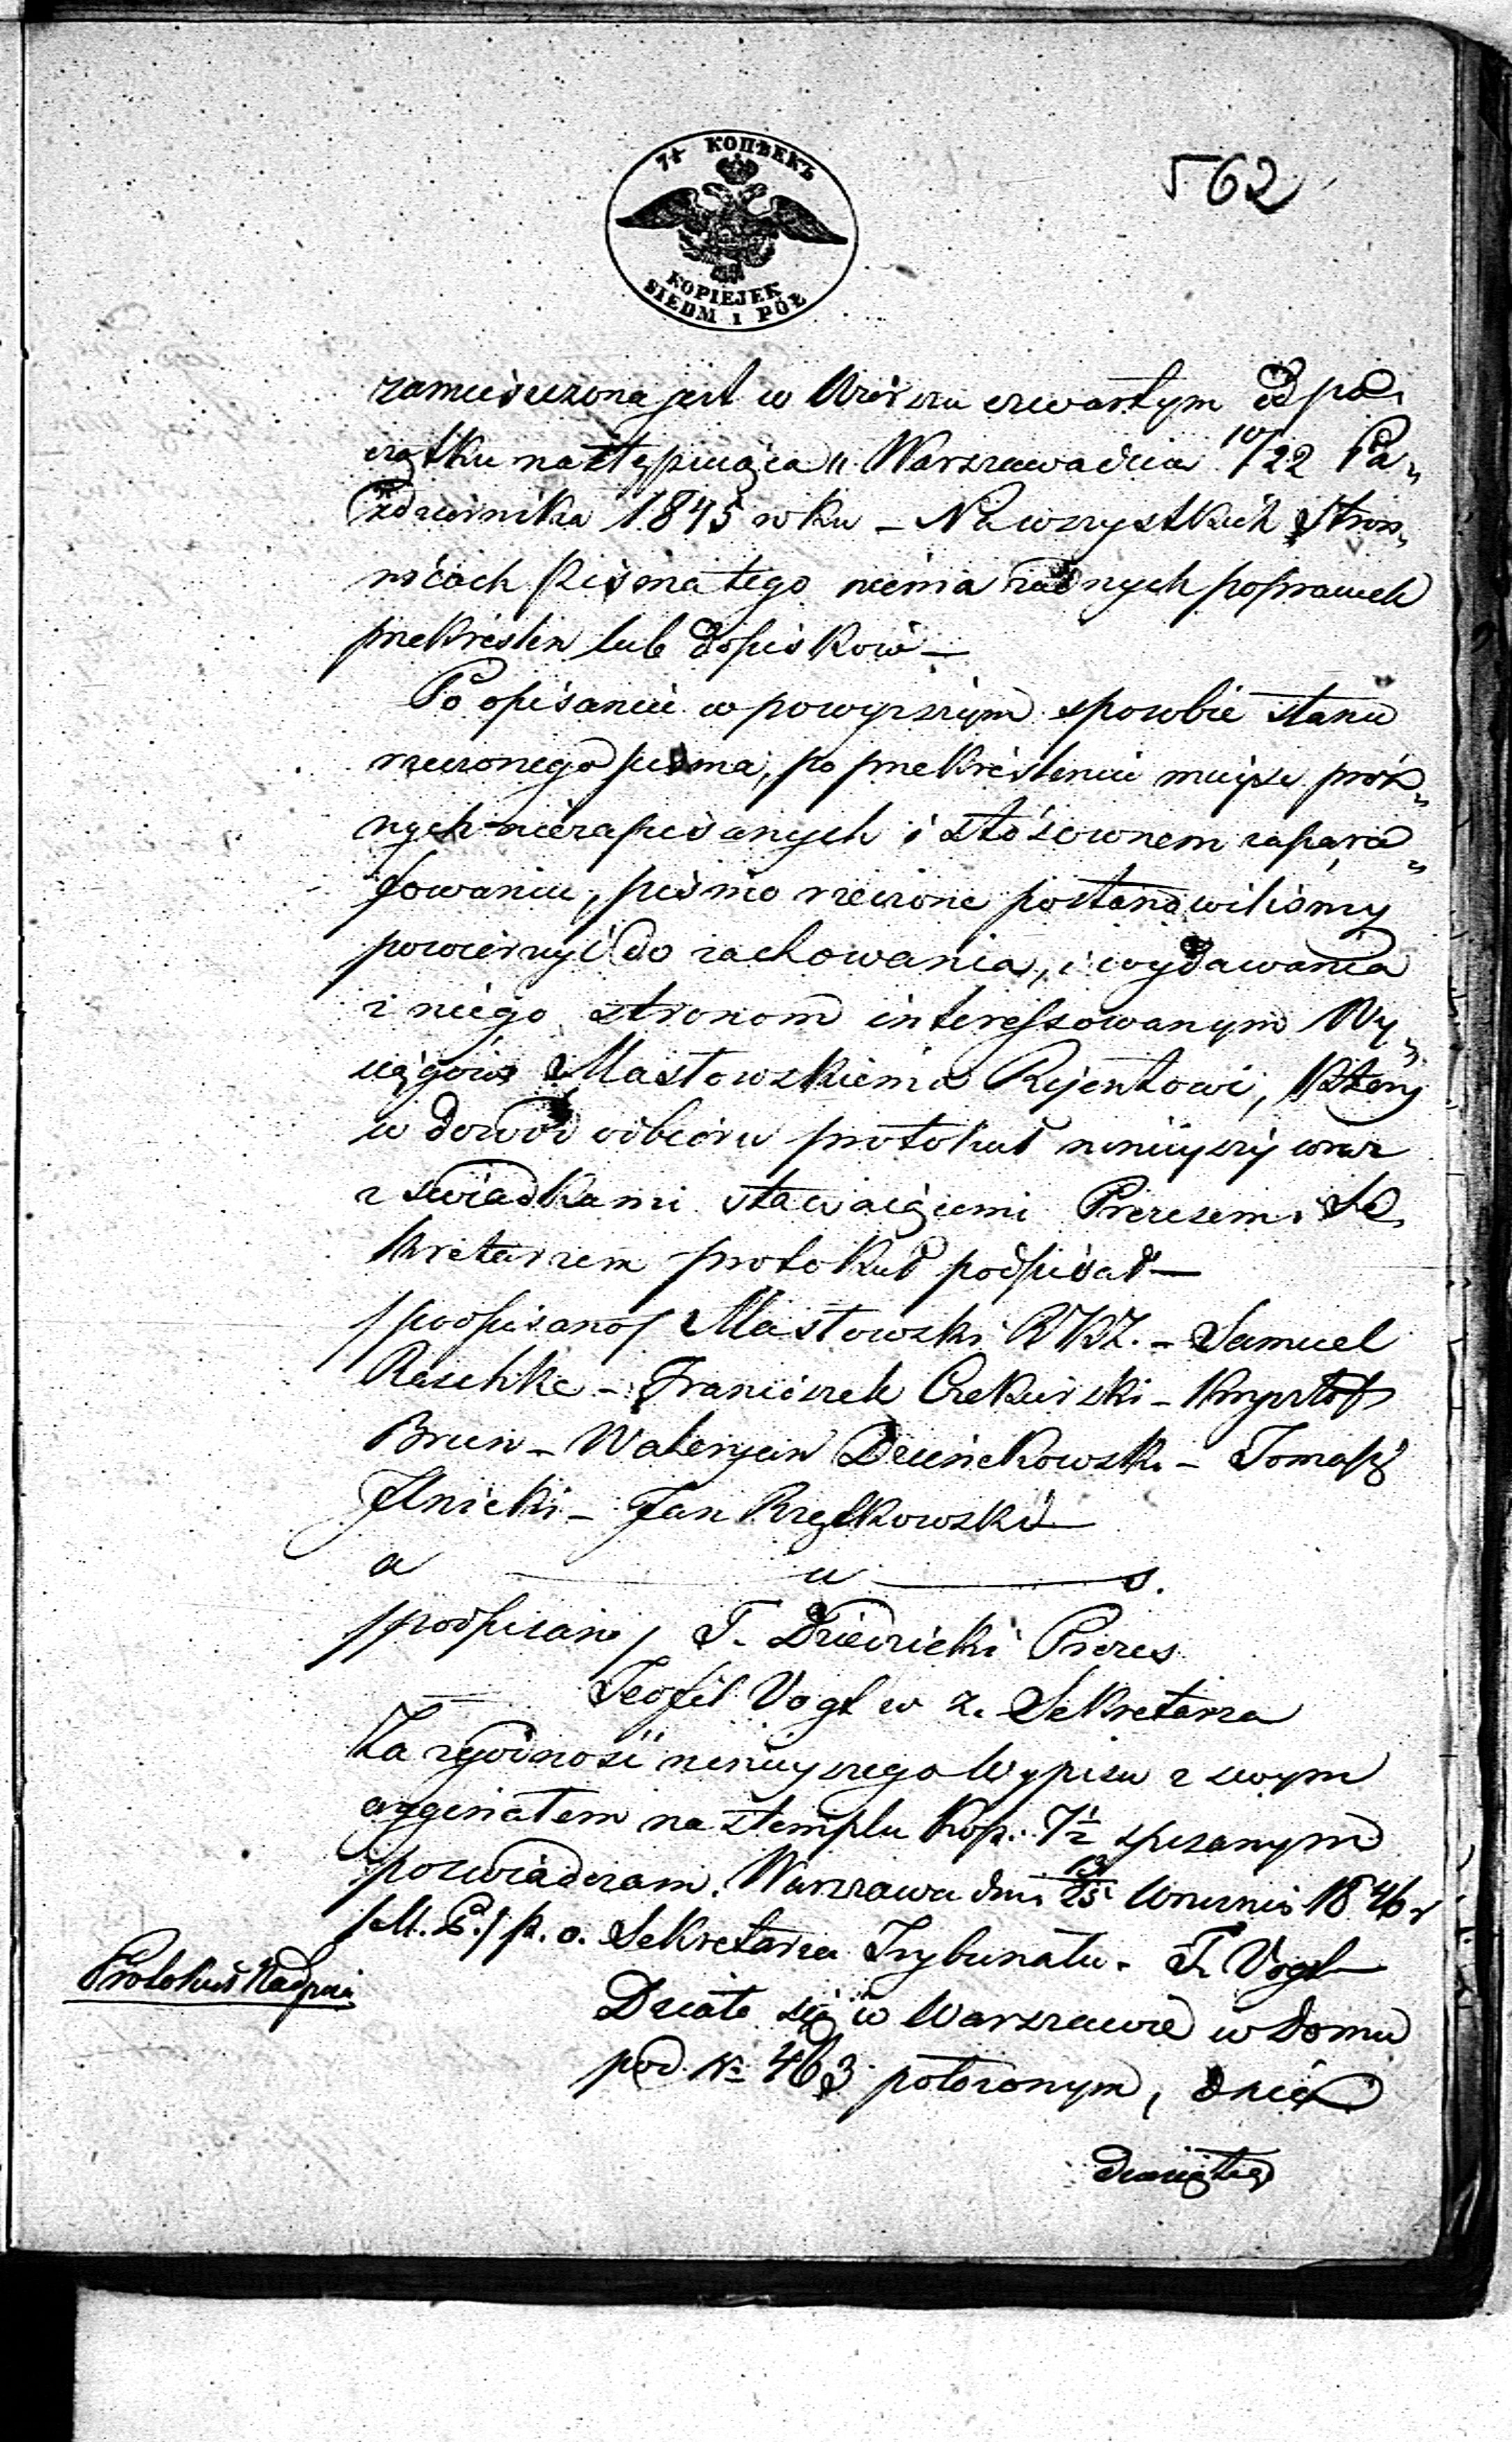 7½ КОПѢЕКЪ
KOPIEJEK
SIEDM i PÓŁ
562
zamieszczona jest w Wierszu czwartym od po„
czątku następująca „ Warszawa dnia 10/22 Pa„
ździernika 1845 roku – Na wszystkich stron„
nicach pisma tego niema żadnych poprawek
przekreśleń lub dopisków –
Po opisaniu w powyższym sposobie stanu
rzeczonego pisma, po przekreśleniu miejsc próż„
nych niezapisanych i stósownem zapara„
fowaniu, pismo rzeczone postanowiliśmy
powierzyć do zachowania, i wydawania
z niego stronom interessowanym Wy„
ciągów Masłowskiemu Rejentowi, który
w dowód odbioru protokuł niniejszy wraz
z świadkami stawaiącemi Prezesem i Se„
kretarzem protokuł podpisał –
/podpisano/ Masłowski R.K.Z. – Samuel
Raschke – Franciszek Czekurski – Krysztof
Brun – Waleryan Dzienkowski – Tomasz
Ilnicki – Jan Rzętkowski
a u s.
/podpisano/ T. Dziewicki Prezes
Teofil Vogt w z. Sekretarza
Za zgodność niniejszego Wypisu z swym
oryginałem na stemplu kop. 7½ spisanym
poświadczam. Warszawa dnia 13/25 Wrześnis 1846 r
/M. P./ p. o. Sekretarza Trybunału. T. Vogt
Protokuł Nadpis
Działo się w Warszawie w domu
pod № 463 położonym, dnia
dwudziestego